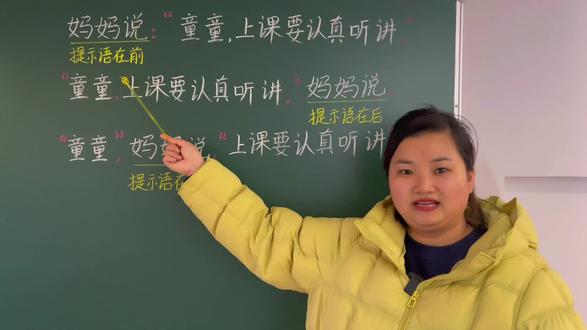 妈妈说：“童童，上课要认真听讲。”
提示语在前
“童童，上课要认真听讲。”妈妈说。
提示语在后
“童童”，妈妈说，“上课要认真听讲
提示语在